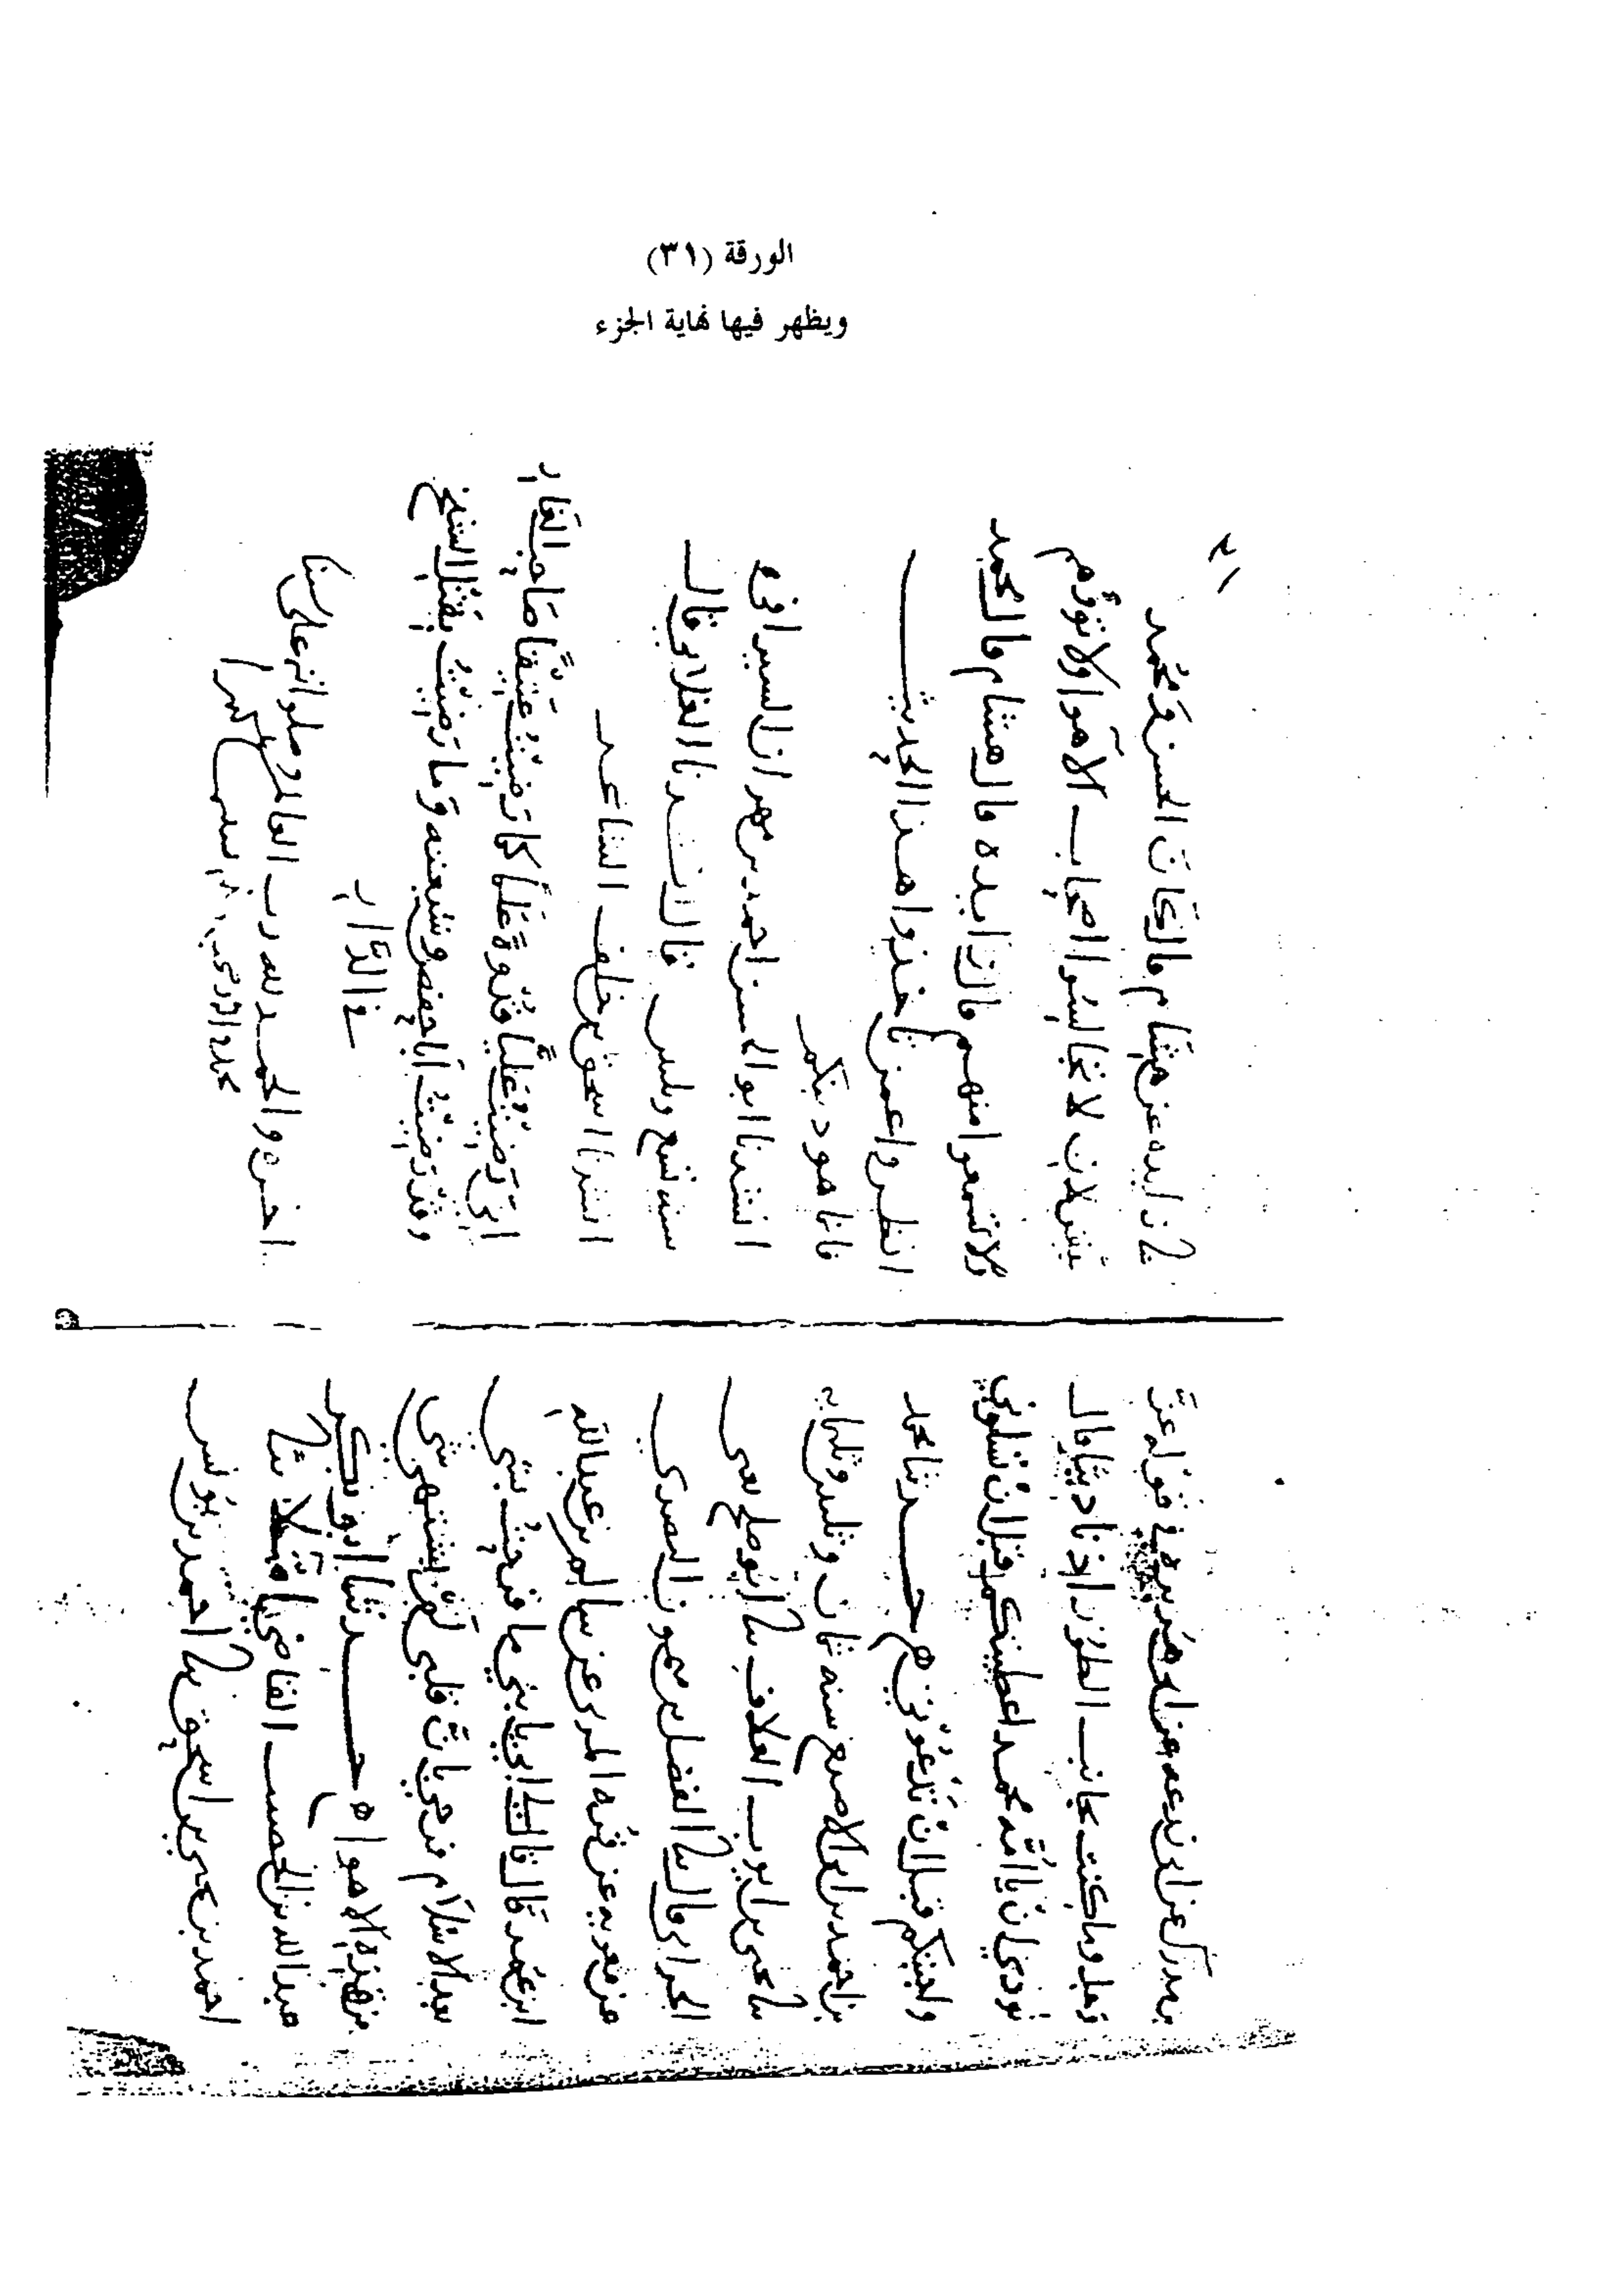 الورقة (٣١)
ويظهر فيها نهاية الجزء
عن ابي زرعه عن ابي هريره في قوله عز
وجل وما كنت بجانب الطور اذ نادينا قال
نودي ان يا امه محمد اعطيتكم قبل ان تسلوني
واجبتكم قبل ان تدعوني حدثنا محمد
بن احمد بن سنه ثمان وثلثين وثلثمايه
ثنا يحيى بن ايوب العلاف ثنا ابو صلح يعني
الحراني قال ثنا الفضل بن ميمون البصري
عن معويه عن قره المزني عن سالم بن عبد الله
ابن عمر قال قال لي ابي يا بني ما فرحت بشي
بعد الاسلام فرحي بان قلبي لم يشتهي شي
من هذه الاهواء حدثنا ابو بكر
عبد الله بن الخصيب القاضي املا ثنا
احمد بن يحيى بن اسحق ثنا احمد بن يونس
ثنا زايده عن هشام قال كان الحسن ومحمد
يقولان لا تجالسوا اصحاب الاهوا ولا
ولا تسمعوا منهم قال زايده قال هشام قال محمد
انظروا عمن تاخذوا هذا الحديث
فانما هو دينكم
انشدنا ابو الحسن احمد بن مهران السيرافي
سنه تسع وثلثين قال انشدنا الغلابي قال
انشدنا اسحق بن خلف الشاعر
اني رضيت عليا قدوة علما كما رضيت عتيقا صاحب الغار
وقد رضيت ابا حفص وشيعته وما رضيت بقتل الشيخ
في الدار
اخره والحمد لله رب العالمين وصلواته على سيدنا
محمد واله وصحبه وسلم كثيرا